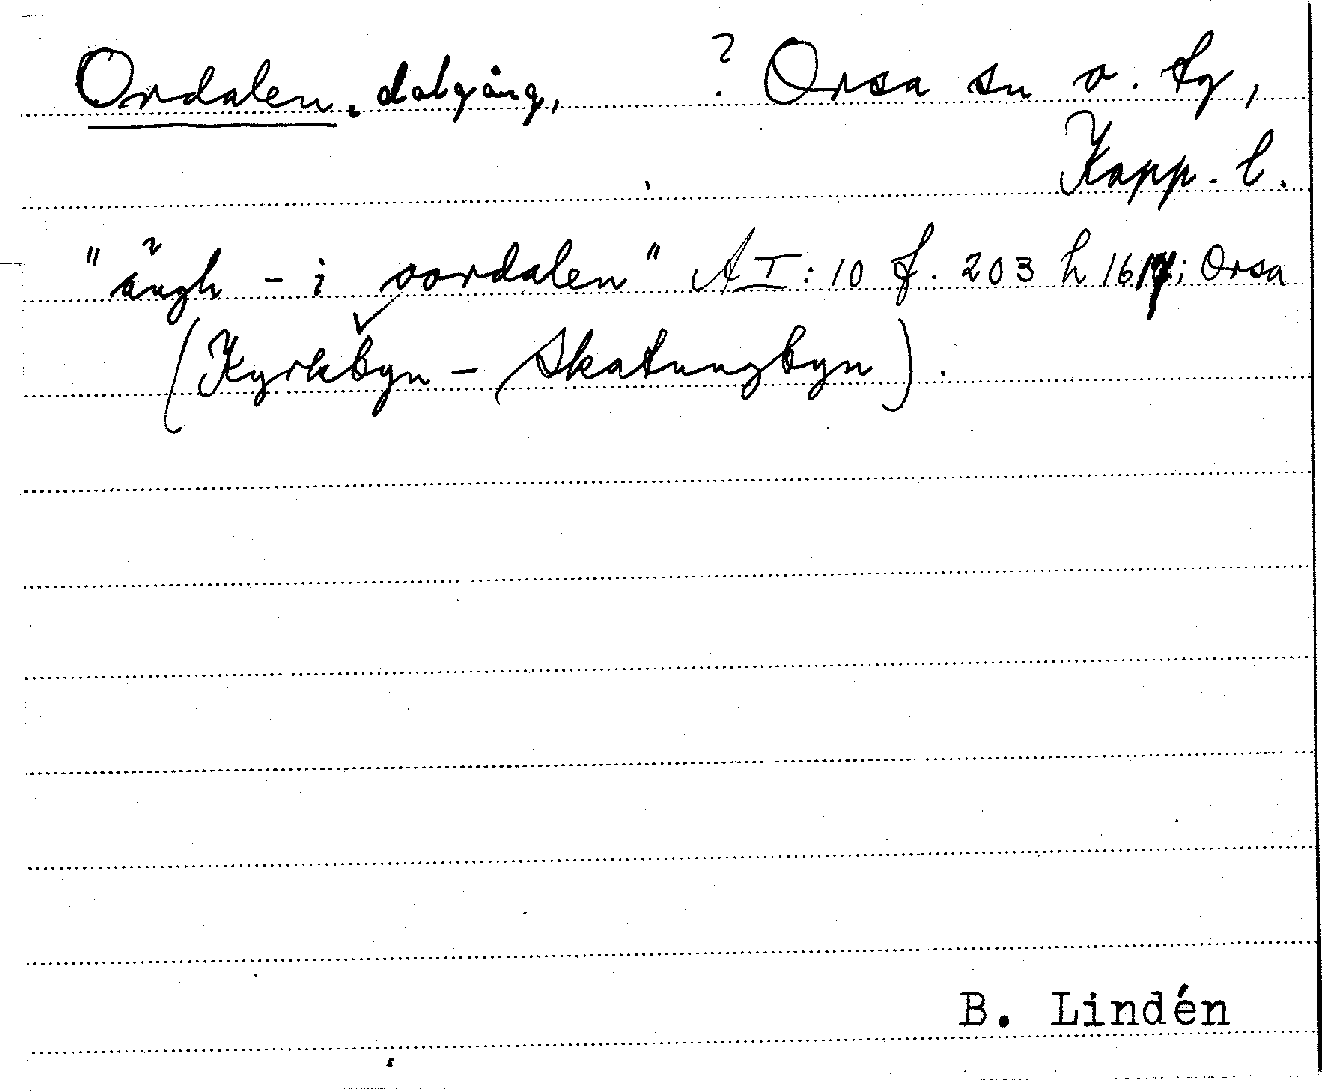 Ordalen, dalgång, ? Orsa sn o. tg,
Kopp. l.
"ängh - i oordalen" AI: 10 f. 203 h 1614; Orsa
(Kyrkbyn - Skattungbyn).
B. Lindén